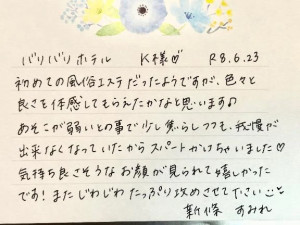 バリバリホテル K様♡ R8.6.23
初めての風俗エステだったようですが、色々と
良さを体感してもらえたかなと思います♪
あそこが弱いとの事で少し焦らしつつも、我慢が
出来なくなっていたからスパートかけちゃいました♡
気持ち良さそうなお顔が見られて嬉しかった
です!またじわじわたっぷり攻めさせてください
新條 すみれ